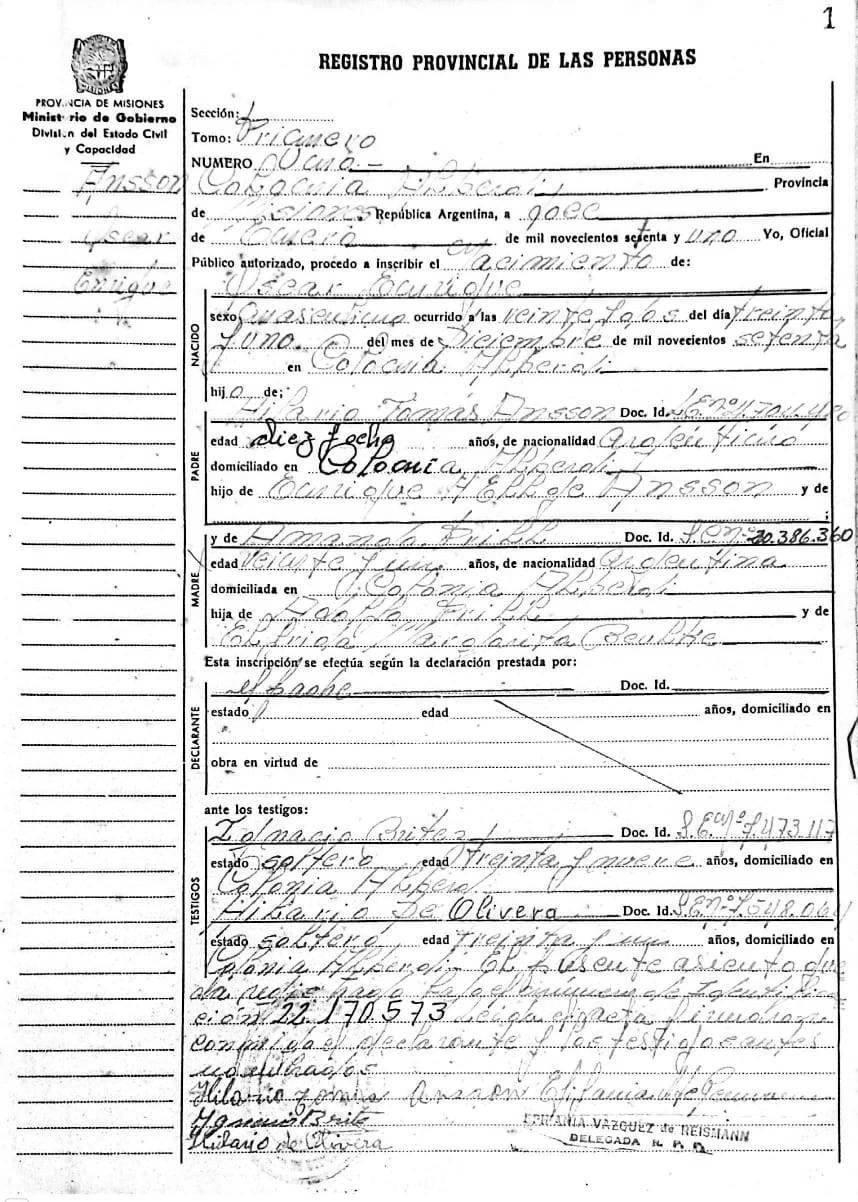 1
REGISTRO PROVINCIAL DE LAS PERSONAS
PROVINCIA DE MISIONES
Ministerio de Gobierno
División del Estado Civil
y Capacidad
Ansson
Oscar
Enrique
Sección:
Tomo: Primero
NUMERO Uno.- En
Colonia Alberdi, Provincia
de Misiones República Argentina, a doce
de Enero de mil novecientos setenta y uno Yo, Oficial
Público autorizado, procedo a inscribir el Nacimiento de:
Oscar Enrique
NACIDO
sexo Masculino ocurrido a las veinte y dos del día treinta
y uno. del mes de Diciembre de mil novecientos setenta
en Colonia Alberdi
hijo de:
PADRE
Hilario Tomás Ansson Doc. Id.
edad diez y ocho años, de nacionalidad Argentino
domiciliado en Colonia Alberdi
hijo de Enrique Ansson y de
;
MADRE
y de Amanda Prill Doc. Id. 20.386.360
edad veinte y un años, de nacionalidad Argentina
domiciliada en Colonia Alberdi
hija de Adolfo Prill y de
Elfrida Margarita
Esta inscripción se efectúa según la declaración prestada por:
DECLARANTE
el padre Doc. Id.
estado edad años, domiciliado en
obra en virtud de
ante los testigos:
TESTIGOS
Ignacio Britez Doc. Id. 7.473.117
estado soltero edad treinta y nueve años, domiciliado en
Colonia Alberdi
Hilario De Olivera Doc. Id.
estado soltero edad treinta y un años, domiciliado en
Colonia Alberdi. El presente asiento que
da redactado número de Identifica
ción 22.170.573 Leída el acta firmaron
conmigo el declarante y los testigos antes
nombrados
Hilario Tomas Ansson Epifania
Ygnacio Brite
Hilario de Olivera
EPIFANIA VAZQUEZ de REISMANN
DELEGADA R. P. P.